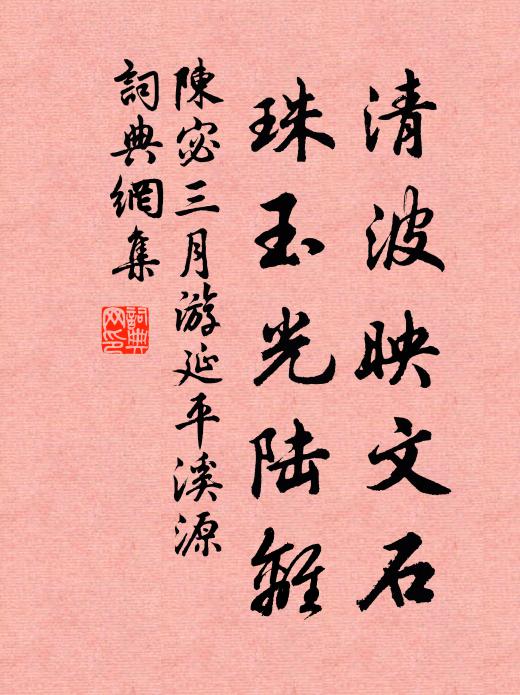 清波映文石
珠玉光陆離
陳宓三月游延平溪源
詞典網集
詞典
网印